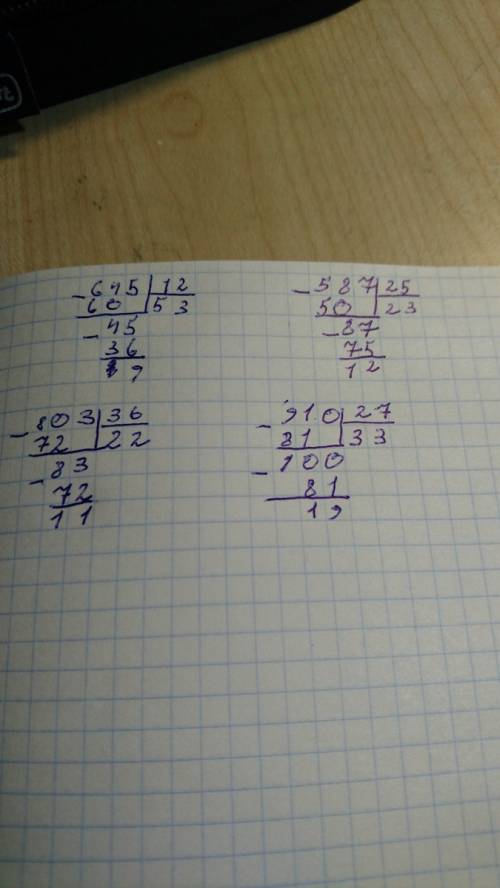 - 645 | 12
60 | 53
- 45
36
9
- 587 | 25
50 | 23
- 87
75
12
- 803 | 36
72 | 22
- 83
72
11
- 910 | 27
81 | 33
- 100
81
19